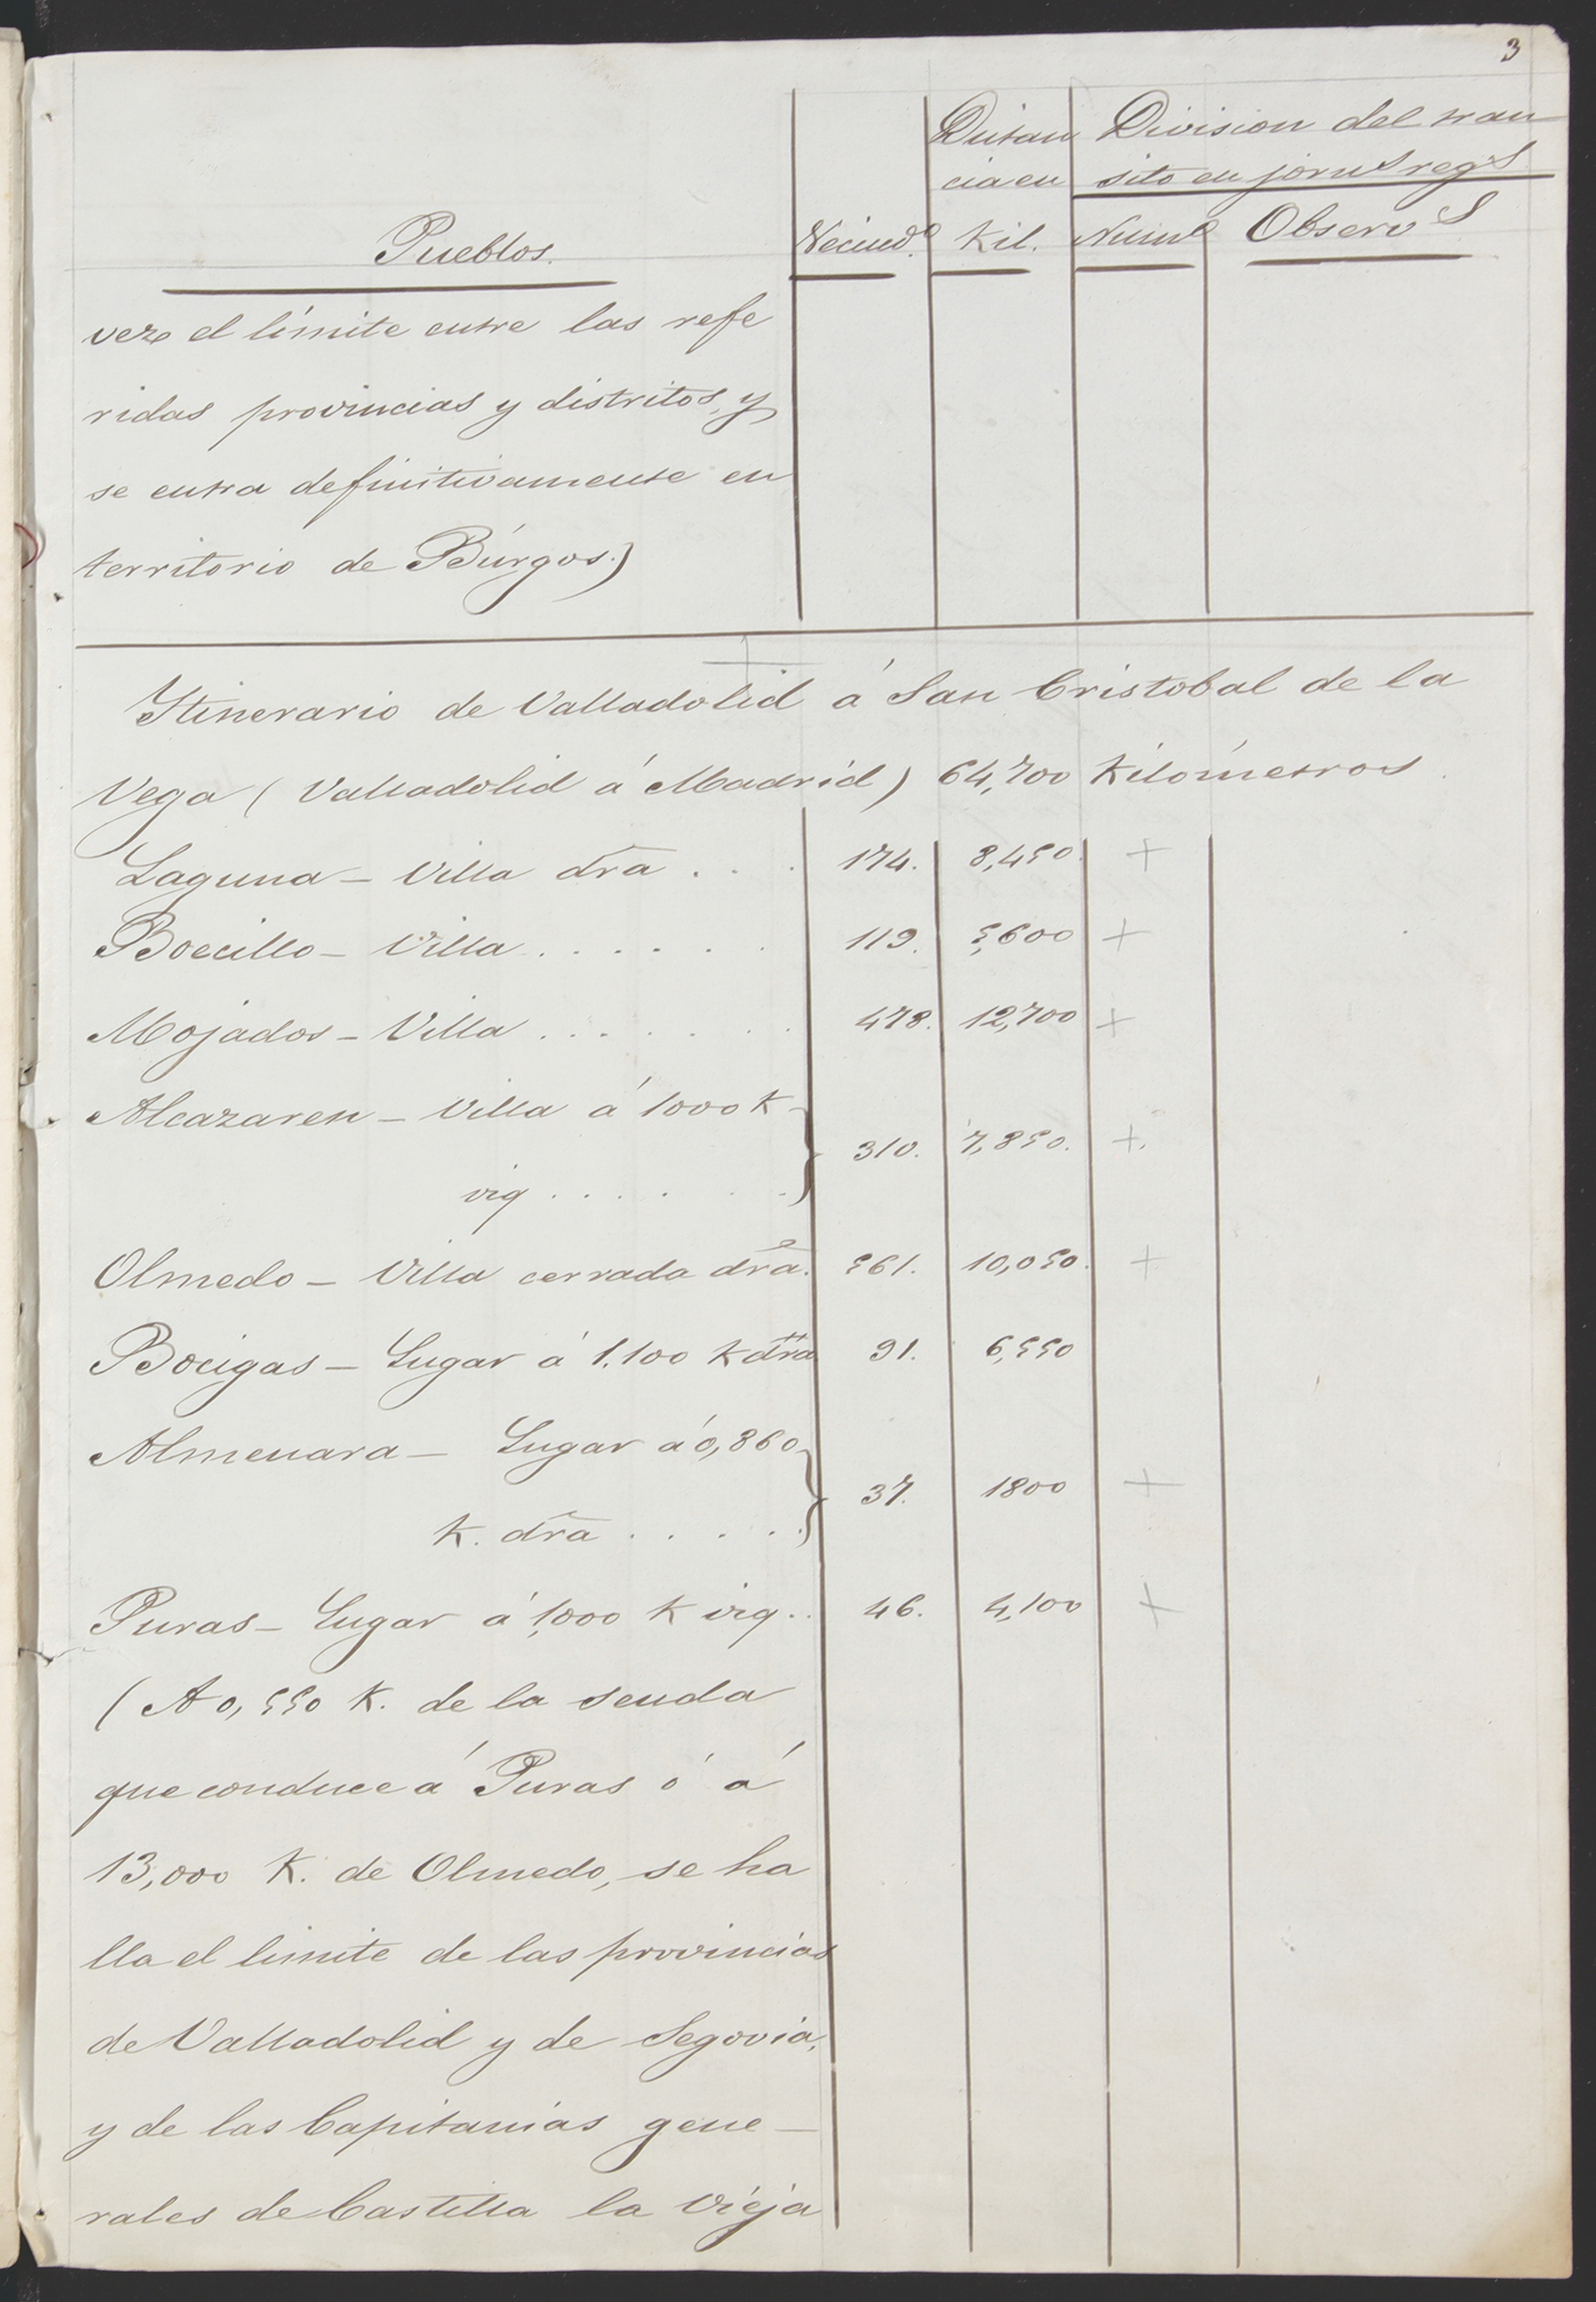 3
Distan Division del tran
cia en sito en jorns regs
Pueblos. Vecindo. Kil. Numo Observs
vez el límite entre las refe
ridas provincias y distritos, y
se entra definitivamente en
territorio de Búrgos.)
Itinerario de Valladolid á San Cristobal de la
Vega (Valladolid á Madrid) 64,700 Kilómetros.
Laguna - Villa dra . . . 174. 8,450. +
Boecillo - Villa . . . . . . 119. 5,600 +
Mojados - Villa . . . . . . 478. 12,700 +
Alcazaren - Villa á 1000 K
310. 7,850. +.
izq . . . . . .
Olmedo - Villa cerrada dra. 561. 10,050. +
Bocigas - Lugar á 1.100 K dra 91. 6,550
Almenara - Lugar á 0,860
37. 1800 +
K. dra . . . . .
Puras - Lugar á 1,000 K izq.. 46. 4,100 +
(A 0,550 K. de la senda
que conduce á Puras ó á
13,000 K. de Olmedo, se ha
lla el limite de las provincias
de Valladolid y de Segovia,
y de las Capitanías gene-
rales de Castilla la Vieja